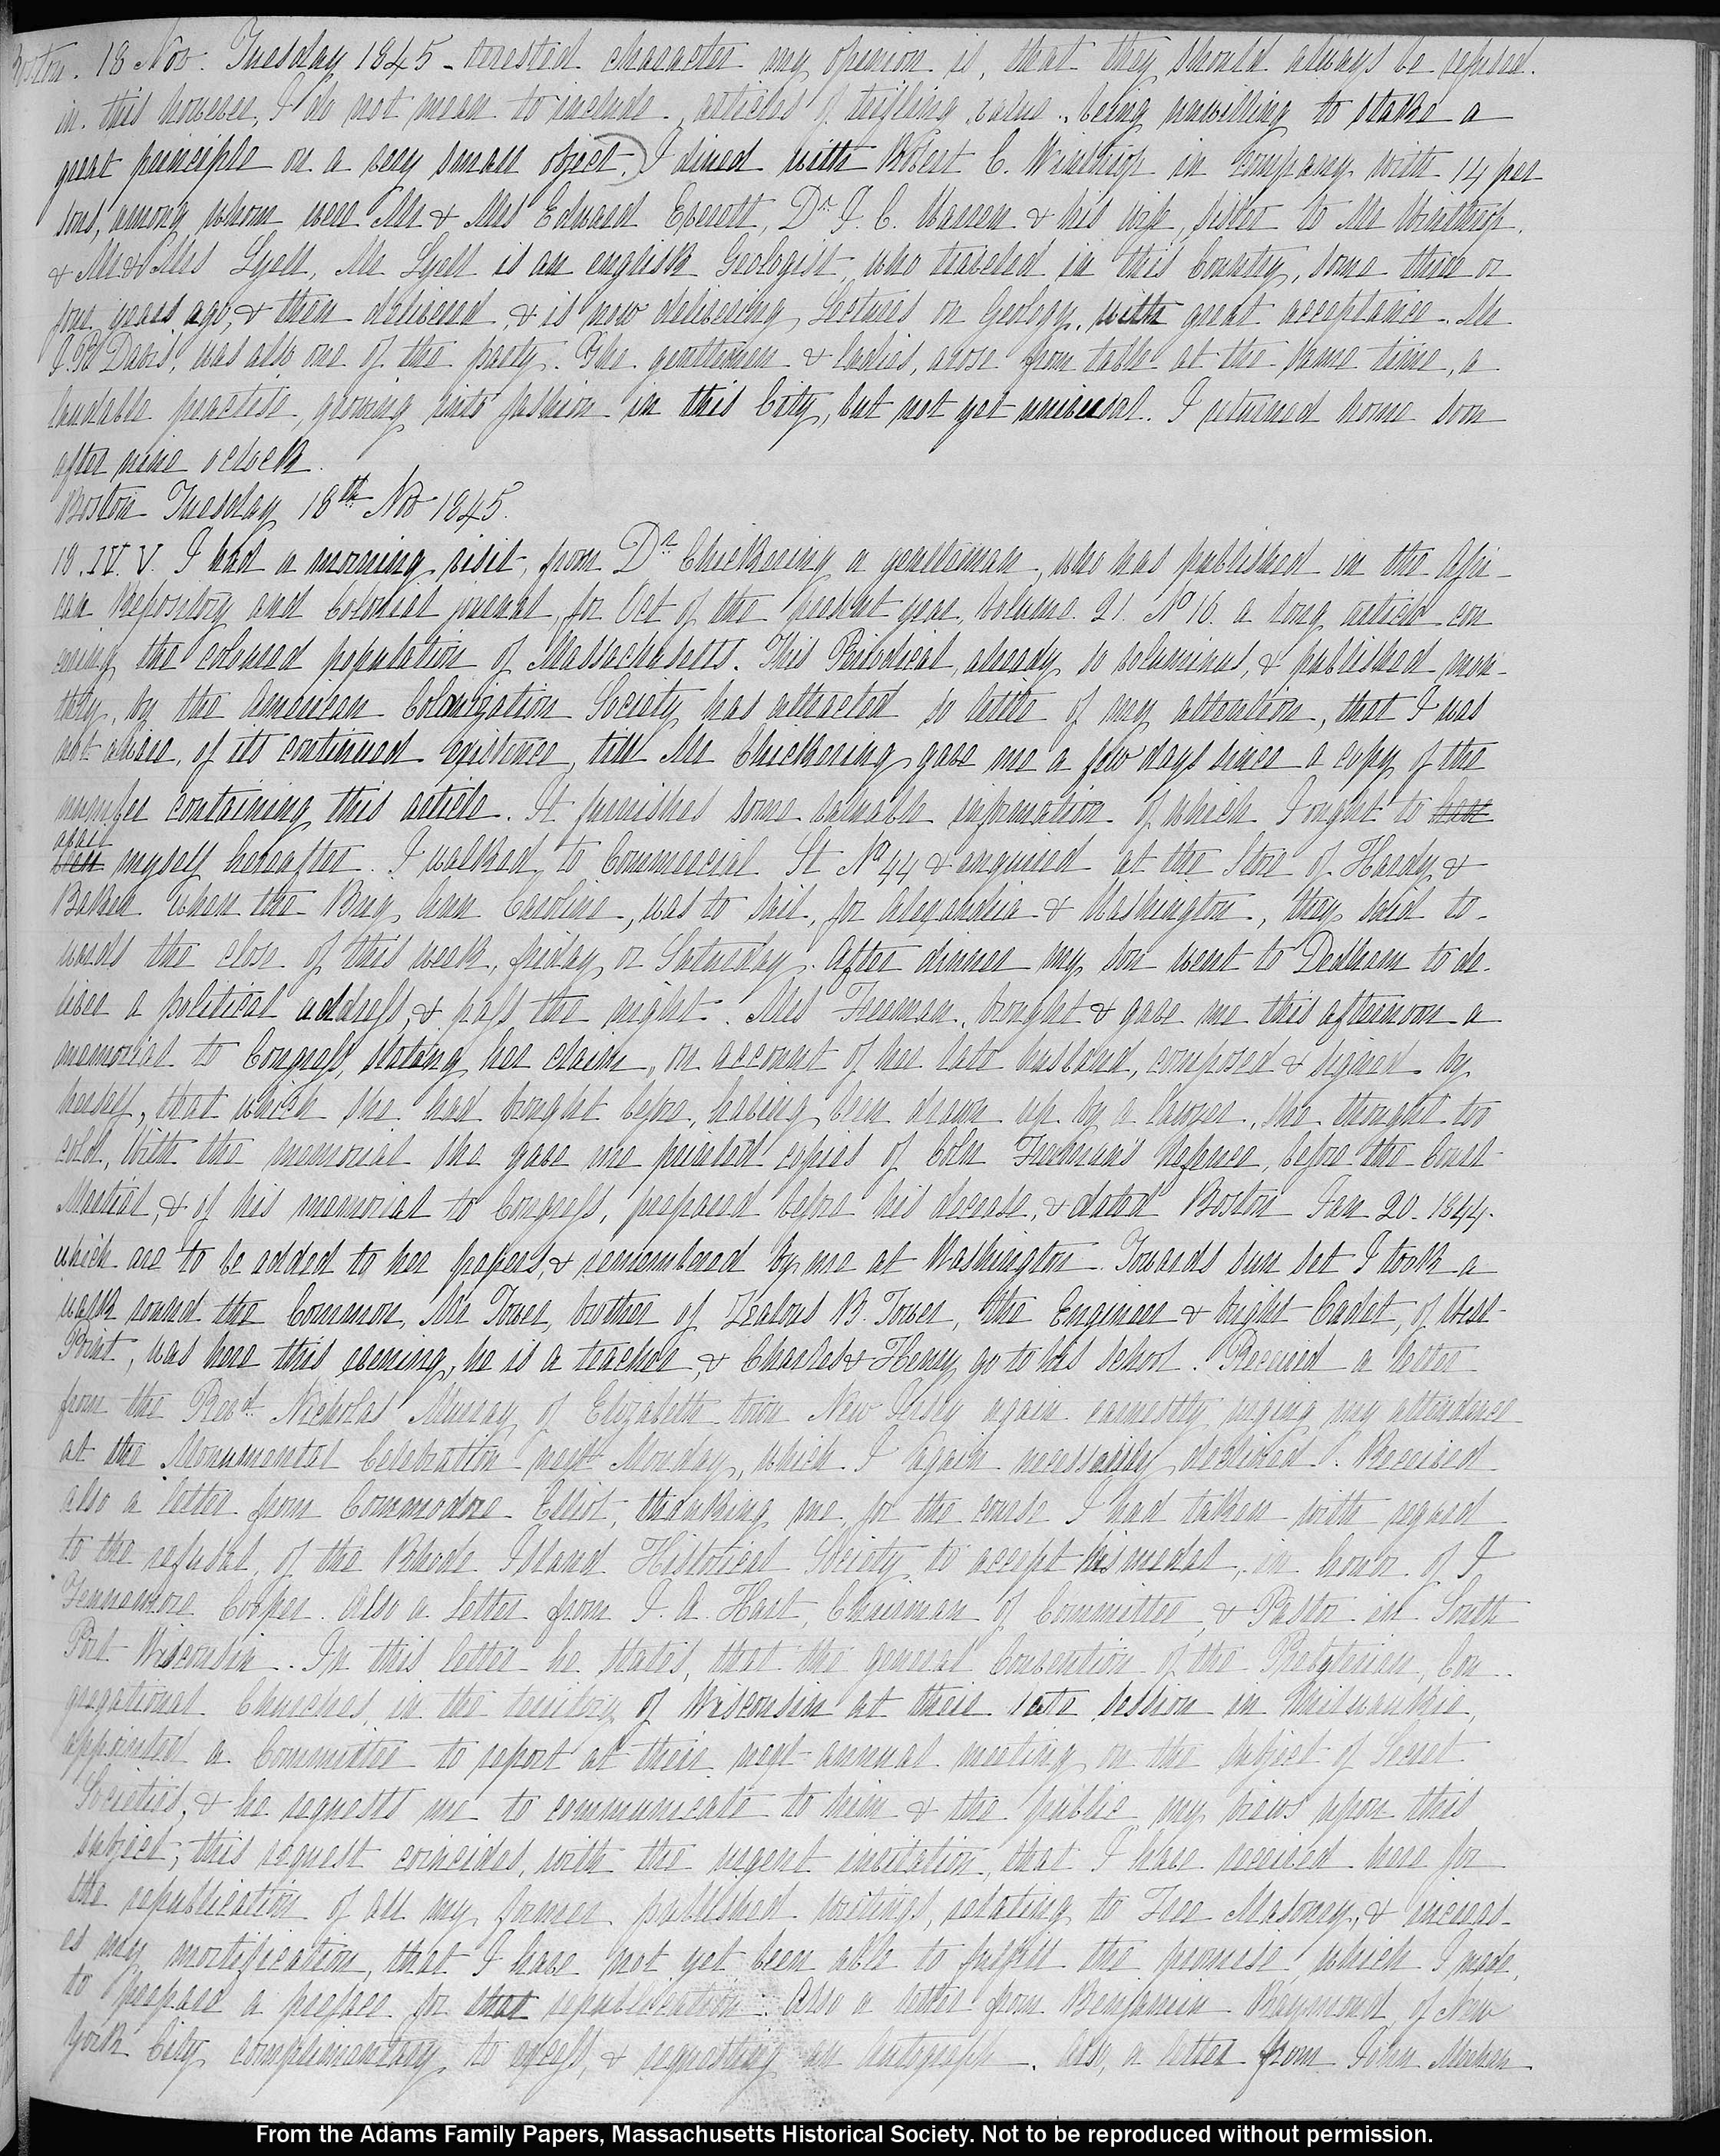 Boston. 18 Nov. Tuesday 1845 - terested character my opinion is, that they should always be refused.
in this however, I do not mean to include, articles of trifling value, being unwilling to stake a
great principle on a very small object. I dined with Robert C. Winthrop in company with 14 per
sons, among whom were Mr & Mrs Edward Everett, Dr. J. C. Warren & his wife, sister to Mr Winthrop,
& Mr & Mrs Lyell, Mr Lyell is an english Geologist, who traveled in this Country, some three or
four years ago, & then delivered, & is now delivering Lectures on Geology, with great acceptance. Mr
Davis, was also one of the party. The gentlemen & ladies, arose from table at the same time, a
laudable practise, growing into fashion in this City, but not yet universal. I returned home soon
after nine oclock.
Boston Tuesday 18th Nov 1845.
18. IV. V. I had a morning visit, from Dr. Chickering a gentleman, who has published in the Afri-
can Repository and Colonial journal, for Oct of the present year, Volume. 21. No 16. a long article con
cerning the coloured population of Massachusetts. This Periodical, already so voluminus, & published mon-
thly, by the American Colonization Society has attracted so little of my attention, that I was
not aware, of its continued existence, till Mr Chickering gave me a few days since a copy of the
number containing this article. It furnishes some valuable information of which I ought to have
avail
been myself hereafter. I walked to Commercial St No 44 & enquired at the Store of Hardy &
Baker when the Brig Ann Caroline, was to sail, for Alexandria & Washington, they said to-
wards the close of this week, friday or Saturday. After dinner my son went to Dedham to de-
liver a political address, & pass the night. Mrs Freeman, brought & gave me this afternoon a
memorial to Congress, stating her claim, on account of her late husband, composed & signed by
herself, that which she had brought before, having been drawn up by a lawyer, she thought too
cold, With the memorial she gave me printed copies of Coln Freeman's Defence, before the Court
Martial, & of his memorial to Congress, prepared before his decease, & dated Boston Jan 20. 1844.
which are to be added to her papers, & remembered by me at Washington. Towards sun set I took a
walk round the Common, Mr Tower, brother of Zealous B. Tower, the Engineer & bright Cadet, of West
Point, was here this evening, he is a teacher, & Charles & Henry go to his school. Received a letter
from the Revd. Nicholas Murray of Elizabeth town New Jersey again earnestly urging my attendance
at the Monumental Celebration next Monday, which I again necessarily declined. Received
also a letter from Commodore Elliot, thanking me for the course I had taken with regard
to the refusal, of the Rhode Island Historical Society to accept his medal, in honor of J
Fennemore Cooper. Also a Letter from J. A. Hart, Chairman of Committee, & Pastor in South
Port Wisconsin. In this letter he states, that the general Convention of the Presbyterian, Con
gregational Churches, in the territory of Wisconsin at their late session in Milwaukie,
appointed a Committee to report at their next annual meeting on the subject of Secret
Societies, & he requests me to communicate to him & the public my views upon this
subject; this request coincides, with the urgent invitation, that I have received here for
the republication of all my former published writings, relating to Free Masonry, & increas-
es my mortification, that I have not yet been able to fulfill the promise, which I made,
to prepare a preface for that republication. Also a letter from Benjamin Raymond of New
York City complimentary to excess, & requesting an Autograph. Also, a letter from John Meehan
From the Adams Family Papers, Massachusetts Historical Society. Not to be reproduced without permission.